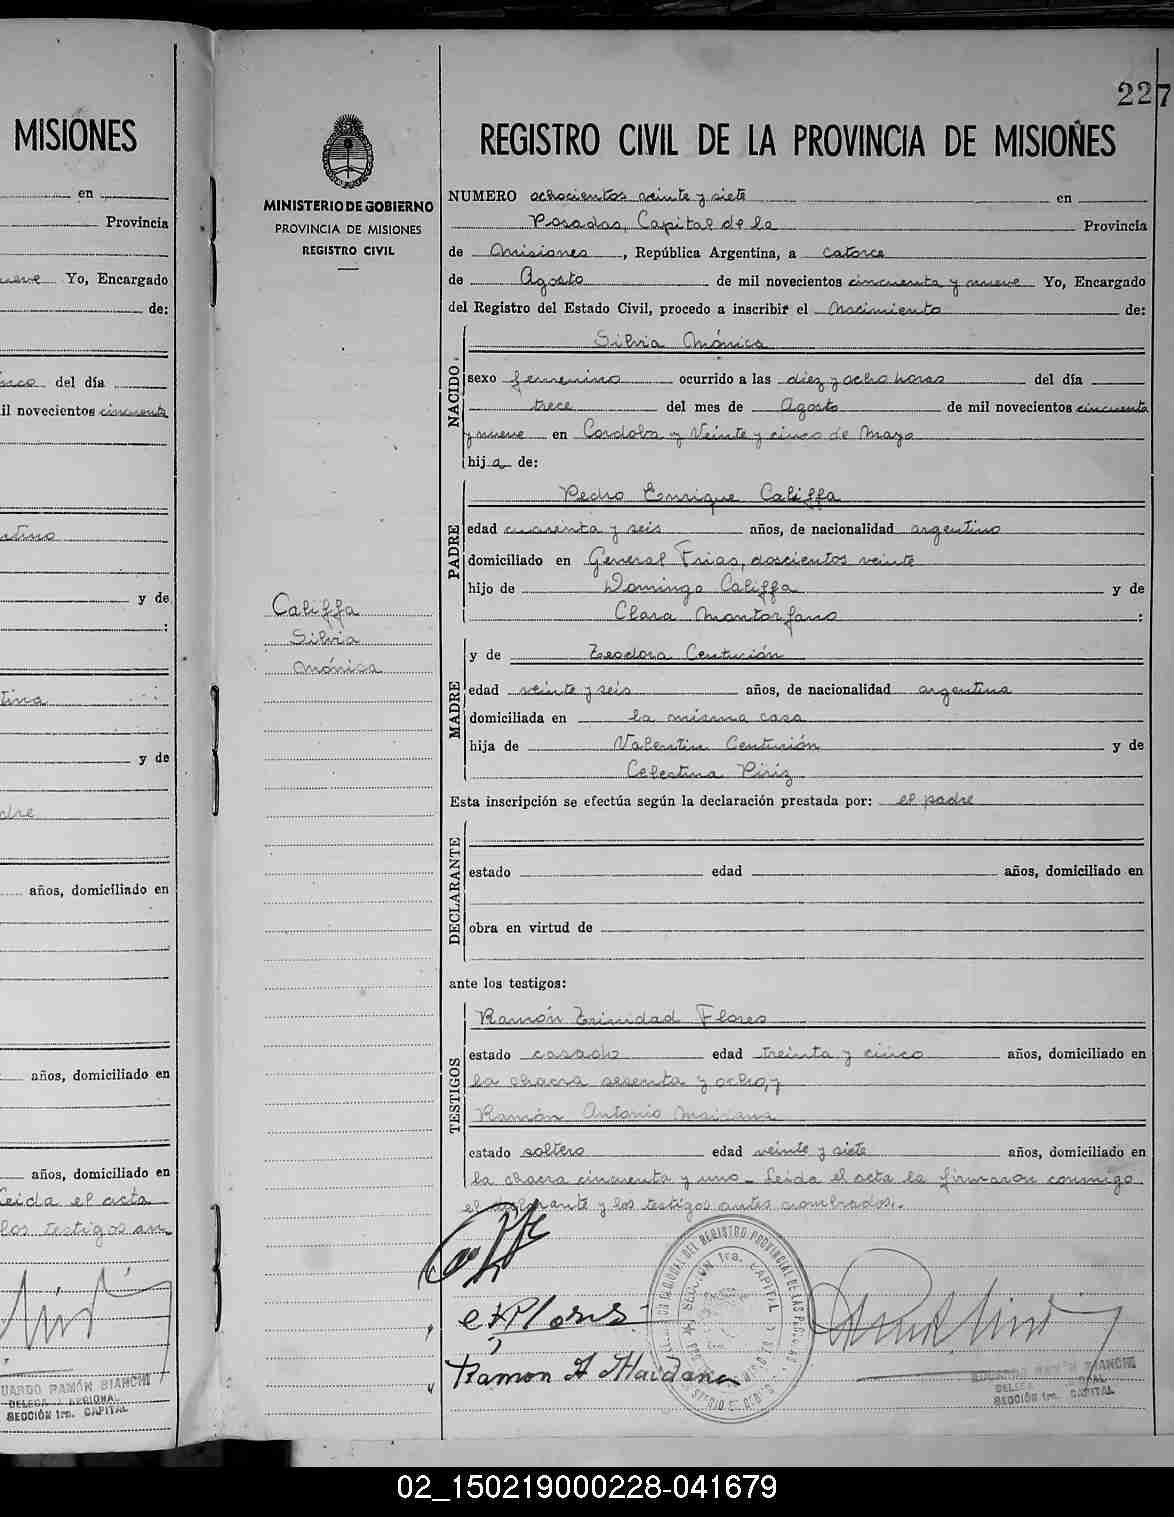 MISIONES
en
Provincia
Yo, Encargado
de:
del día
il novecientos cincuenta
y de
:
tina
y de
años, domiciliado en
años, domiciliado en
años, domiciliado en
Leida el acta
los testigos an
UARDO RAMÓN BIANCHI
SECCIÓN 1ra. CAPITAL
MINISTERIO DE GOBIERNO
PROVINCIA DE MISIONES
REGISTRO CIVIL
Califfa
Silvia
Mónica
227
REGISTRO CIVIL DE LA PROVINCIA DE MISIONES
NUMERO ochocientos veinte y siete en
Posadas, Capital de la Provincia
de Misiones, República Argentina, a catorce
de Agosto de mil novecientos cincuenta y nueve Yo, Encargado
del Registro del Estado Civil, procedo a inscribir el Nacimiento de:
NACIDO
Silvia Mónica
sexo femenino ocurrido a las diez y ocho horas del día
trece del mes de Agosto de mil novecientos cincuenta
y nueve en Cordoba y Veinte y cinco de Mayo
hija de:
PADRE
Pedro Enrique Califfa
edad cuarenta y seis años, de nacionalidad argentino
domiciliado en General Frias, doscientos veinte
hijo de Domingo Califfa y de
Clara Montorfano :
MADRE
y de Teodora Centurión
edad veinte y seis años, de nacionalidad argentina
domiciliada en la misma casa
hija de Valentin Centurión y de
Celestina Piriz
Esta inscripción se efectúa según la declaración prestada por: el padre
DECLARANTE
estado edad años, domiciliado en
obra en virtud de
ante los testigos:
TESTIGOS
Ramón Trinidad Flores
estado casado edad treinta y cinco años, domiciliado en
la chacra sesenta y ocho, y
Ramón Antonio Maidana
estado soltero edad veinte y siete años, domiciliado en
la chacra cincuenta y uno. Leida el acta la firmaron conmigo
el declarante y los testigos antes nombrados.
SECCIÓN 1ra. CAPITAL
Ramon A Maidana
EDUARDO RAMÓN BIANCHI
SECCIÓN 1ra. CAPITAL
02_150219000228-041679